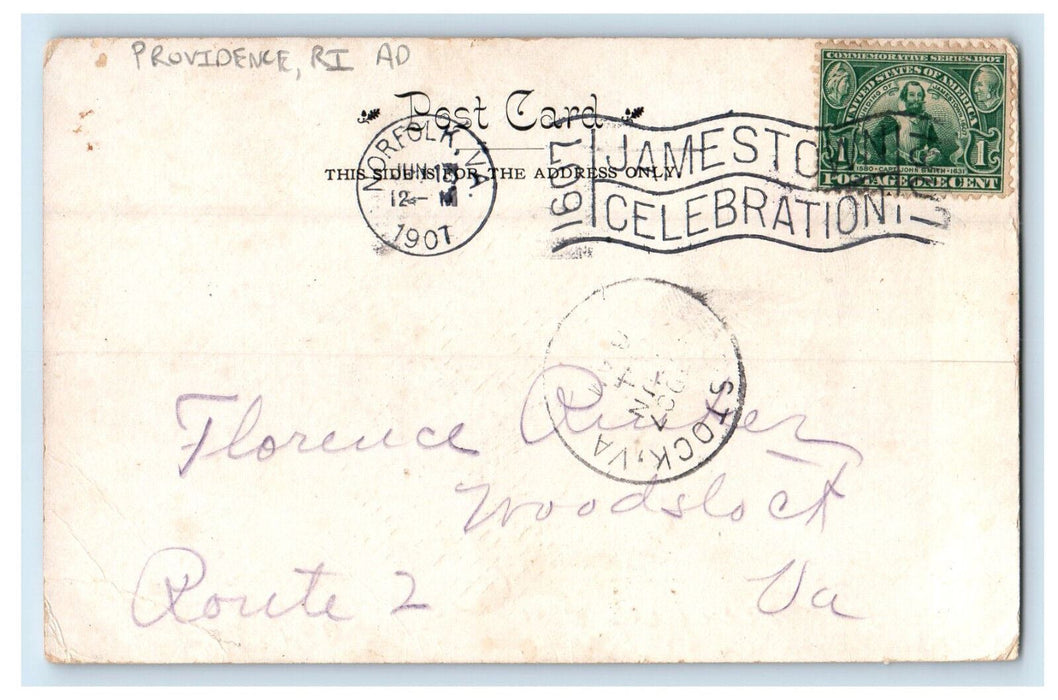 PROVIDENCE, RI AD
Post Card
THIS SIDE IS FOR THE ADDRESS ONLY
NORFOLK, VA.
JUN 13
12 - M
1907
1607 JAMESTOWN 1907
CELEBRATION
COMMEMORATIVE SERIES 1907
UNITED STATES OF AMERICA
FOUNDING OF JAMESTOWN
1580 - CAPT. JOHN SMITH - 1631
POSTAGE ONE CENT
1
STOCK, VA
JUN
14
Florence
Woodstock
Route 2 Va